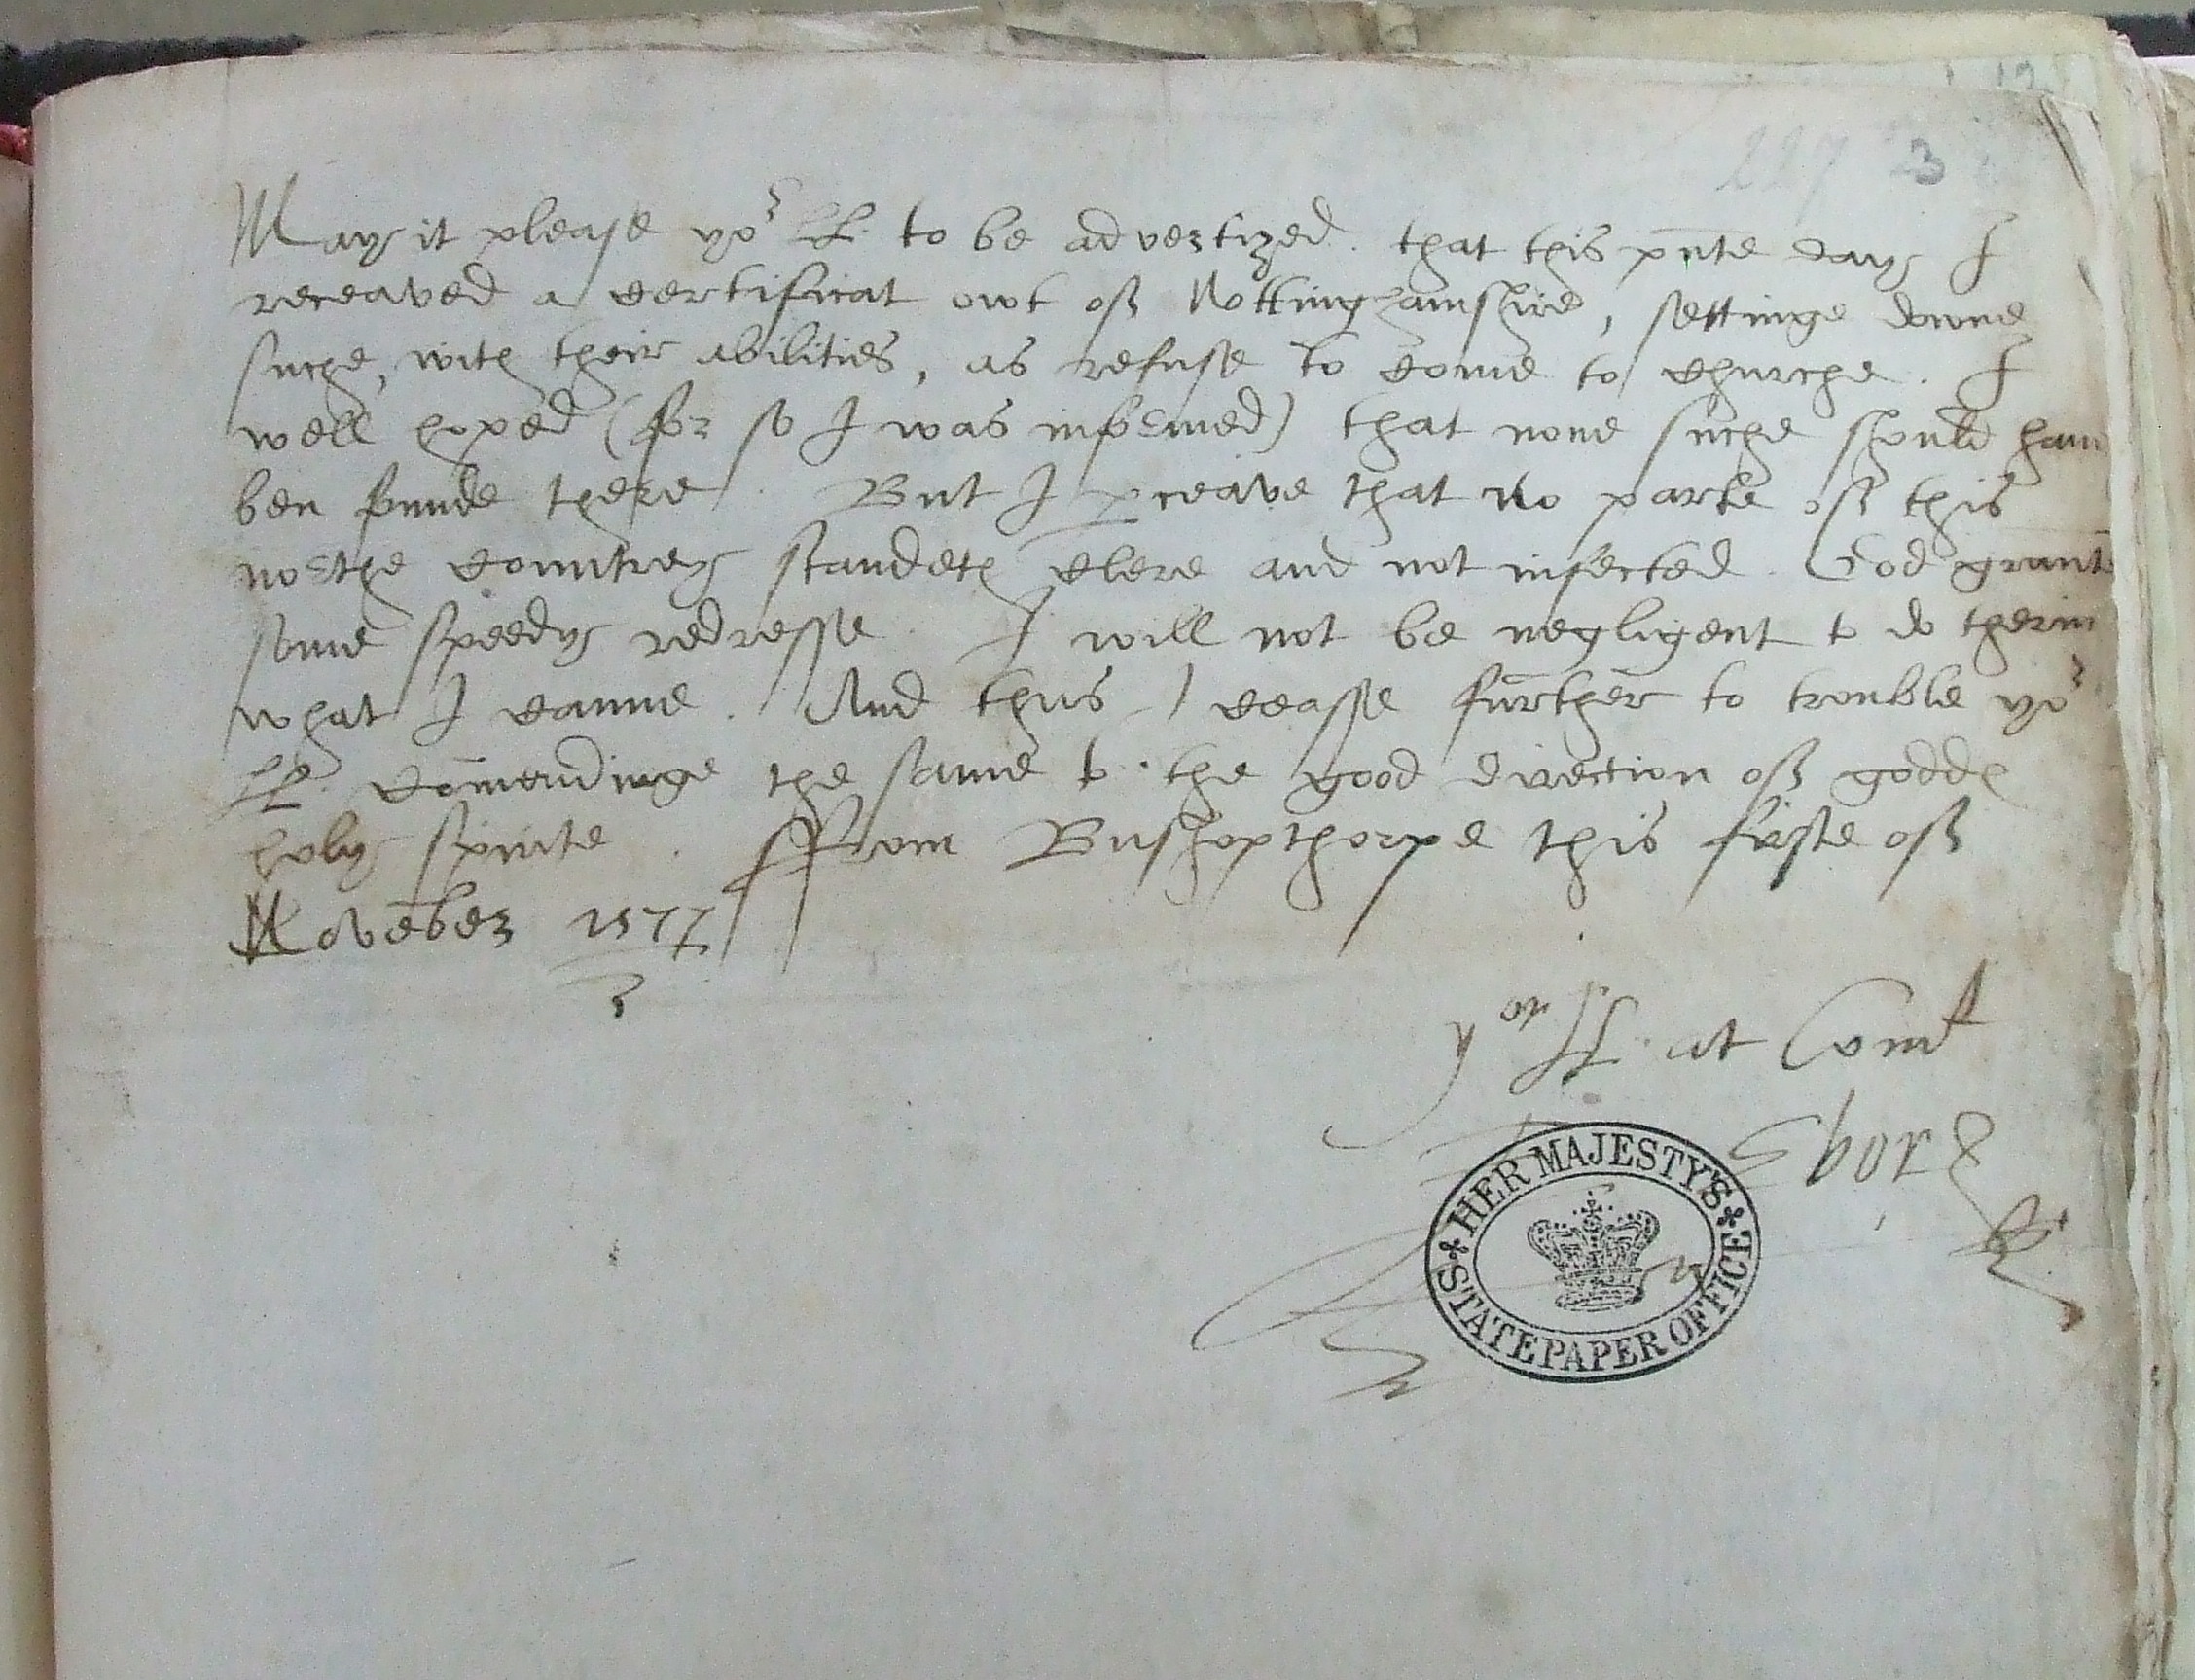 227 3
May it please yor LL. to be advertized. that this pnte day I
receaved a certificat owt off Nottinghamshire, settinge downe
suche, with their abilities, as refuse to come to churche. I
well hoped (for so I was informed) that none suche should haue
ben funde there. But I pceave that no parte off this
northe countrey standeth clere and not infected. God graunte
some speedy redresse. I will not be negligent to do therin
what I canne. And thus I ceasse further to trouble yor
LL. comendinge the same to the good direction off godds
holy spirite. ffrom Busshopthorpe this firste off
November 1577
Yor LL. at Comt
E
HER MAJESTY'S
STATE PAPER OFFICE